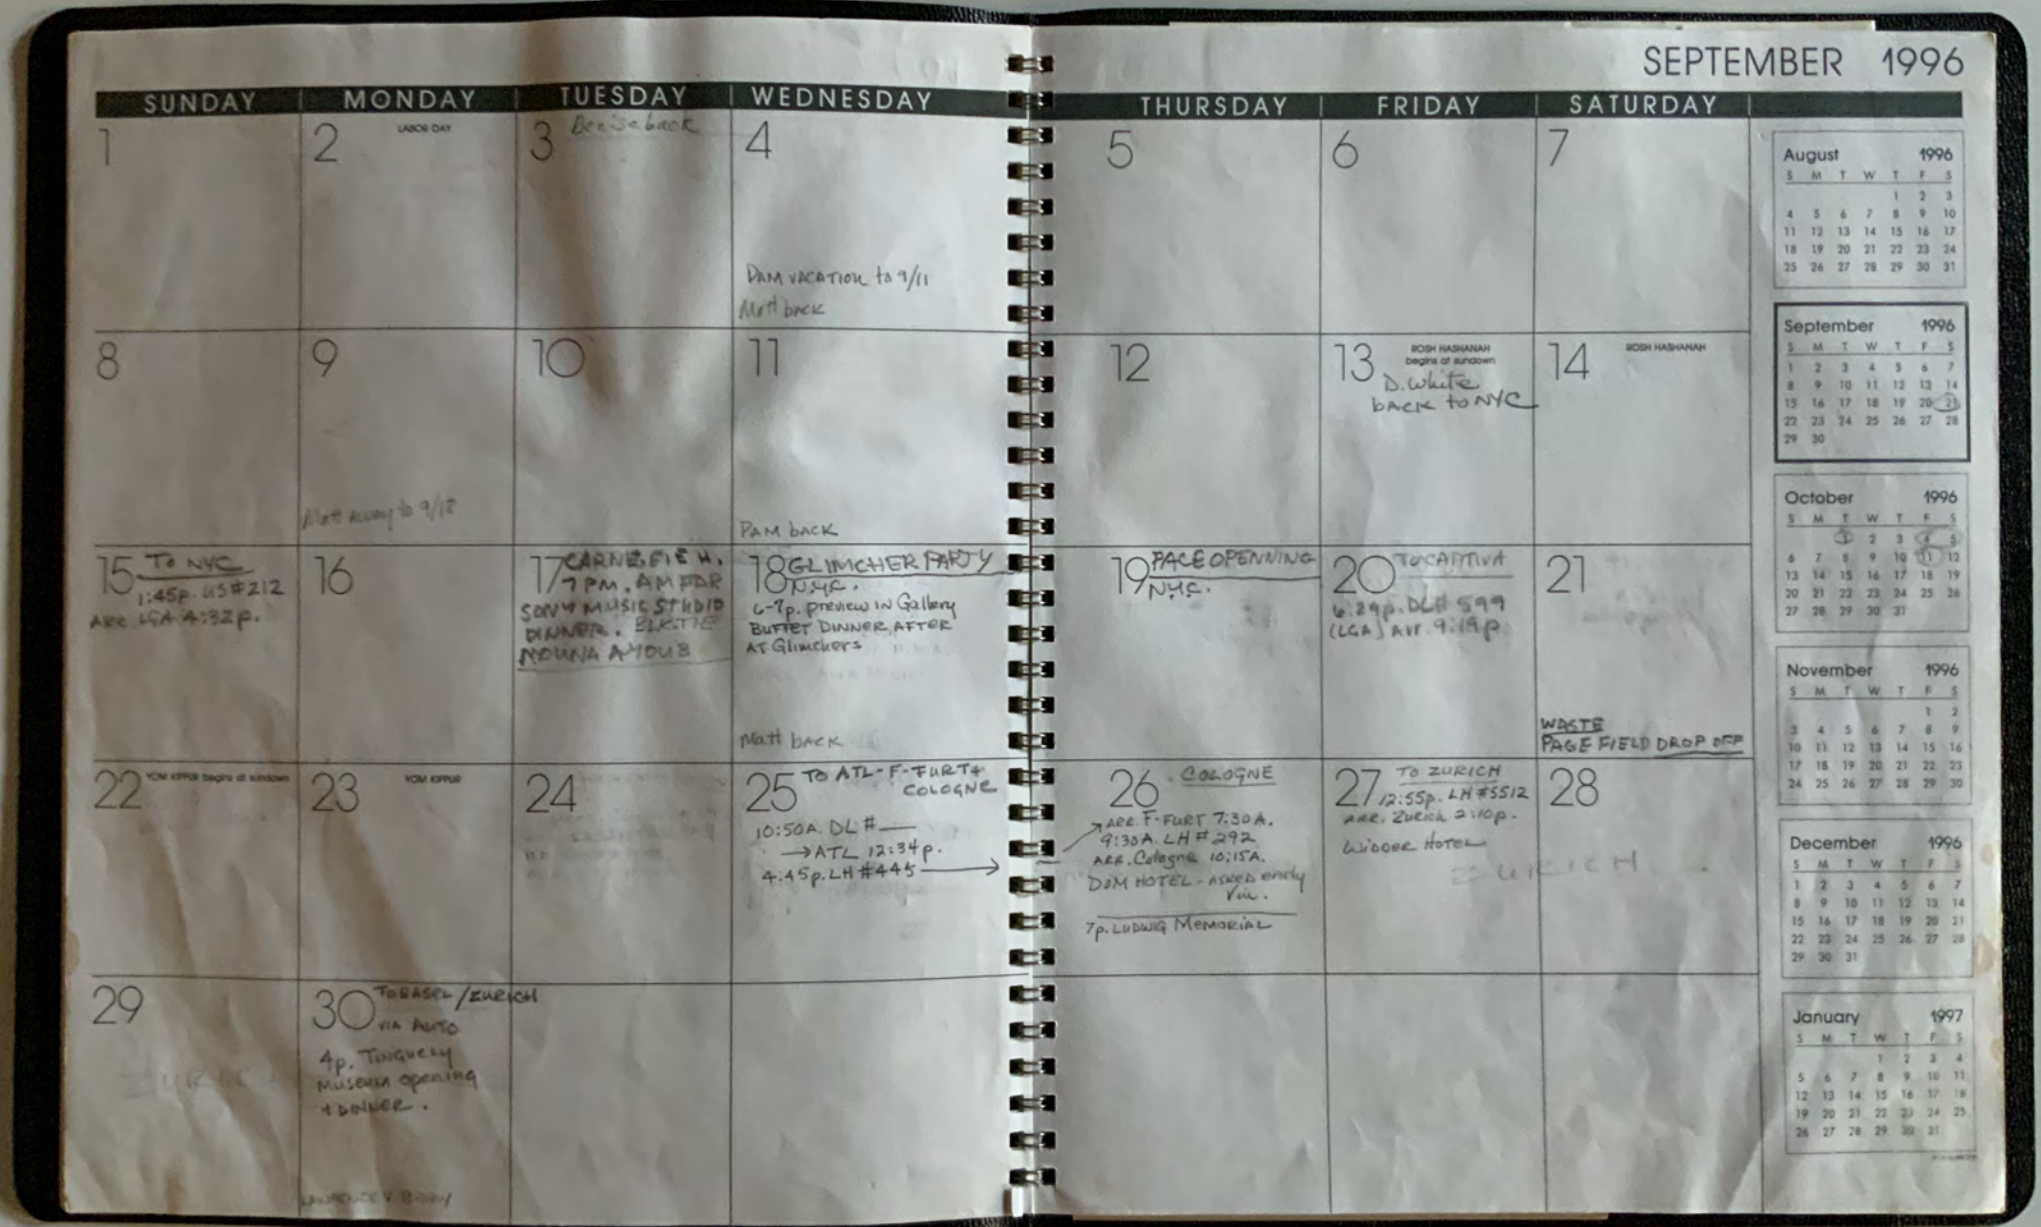 SEPTEMBER 1996
SUNDAY MONDAY TUESDAY WEDNESDAY THURSDAY FRIDAY SATURDAY
1
2 LABOR DAY
3 Denise back
4
PAM VACATION to 9/11
Matt back
5
6
7
8
9
Matt away to 9/18
10
11
PAM back
12
13 ROSH HASHANAH
begins at sundown
D. White
back to NYC
14 ROSH HASHANAH
15 TO NYC
1:45p. US#212
ARR. LGA 4:32p.
16
17 CARNEGIE H.
7 PM. AMFAR
SONY MUSIC STUDIO
DINNER. BLK.TIE
MOUNA AYOUB
18 GLIMCHER PARTY
N.Y.C.
6-7p. preview in Gallery
BUFFET DINNER AFTER
AT Glimchers
Matt back
19 PACE OPENNING
N.Y.C.
20 TO CAPTIVA
6:29p. DL# 599
(LGA) Arr. 9:19p.
21
WASTE
PAGE FIELD DROP OFF
22 YOM KIPPUR begins at sundown
23 YOM KIPPUR
24
25 TO ATL-F-FURT+
COLOGNE
10:50A. DL #
→ATL 12:34p.
4:45p. LH #445 →
26 COLOGNE
ARR. F-FURT 7:30A.
9:30A. LH # 292
ARR. Cologne 10:15A.
DOM HOTEL - ASKED early
7p. LUDWIG MEMORIAL
27 TO ZURICH
12:55p. LH #5512
ARR. Zurich 2:10p.
WIDDER HOTEL
ZURICH
28
29
ZURICH
30 TO BASEL/ZURICH
VIA AUTO
4p. TINGUELY
MUSEUM opening
+ DINNER.
August 1996
S M T W T F S
1 2 3
4 5 6 7 8 9 10
11 12 13 14 15 16 17
18 19 20 21 22 23 24
25 26 27 28 29 30 31
September 1996
S M T W T F S
1 2 3 4 5 6 7
8 9 10 11 12 13 14
15 16 17 18 19 20 21
22 23 24 25 26 27 28
29 30
October 1996
S M T W T F S
1 2 3 4 5
6 7 8 9 10 11 12
13 14 15 16 17 18 19
20 21 22 23 24 25 26
27 28 29 30 31
November 1996
S M T W T F S
1 2
3 4 5 6 7 8 9
10 11 12 13 14 15 16
17 18 19 20 21 22 23
24 25 26 27 28 29 30
December 1996
S M T W T F S
1 2 3 4 5 6 7
8 9 10 11 12 13 14
15 16 17 18 19 20 21
22 23 24 25 26 27 28
29 30 31
January 1997
S M T W T F S
1 2 3 4
5 6 7 8 9 10 11
12 13 14 15 16 17 18
19 20 21 22 23 24 25
26 27 28 29 30 31